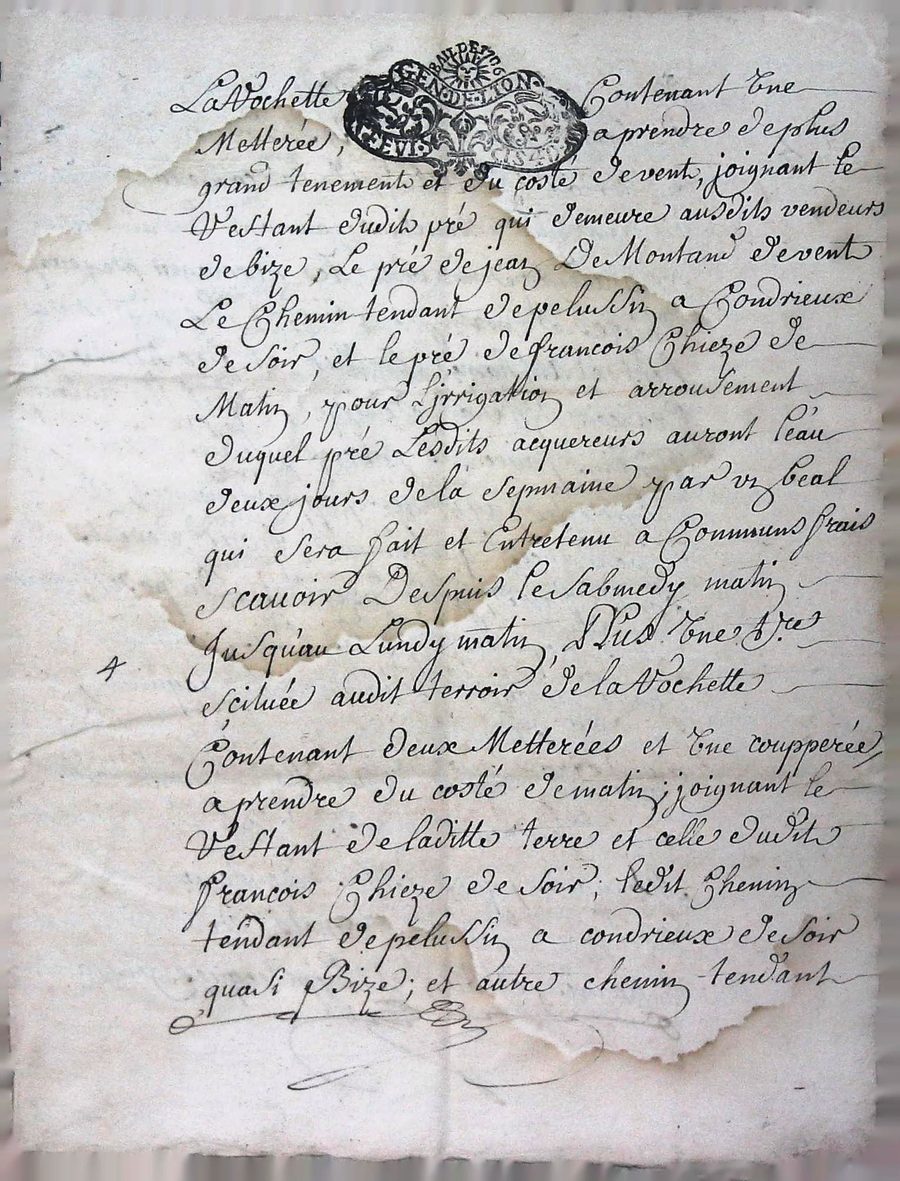 BAIL DE 1726
GEN·DE·LYON
La Vochette Contenant Une
Metterée, a prendre de plus
grand tenement et du costé de vent, joignant le
Restant dudit pré qui demeure ausdits vendeurs
de bize, Le pré de jean De Montand de vent
Le Chemin tendant de pelussin a Condrieux
de Soir, et le pré de francois Chieze de
Matin, pour Ljrrigation et arrousement
duquel pré Lesdits acquereurs auront l'éau
deux jours de la sepmaine par un beal
qui Sera fait et Entretenu a Communs frais
scauoir Despuis le Sabmedy matin
Jusqu'au Lundy matin, Plus Une t.res
sçituée audit terroir de la Vochette
4
Contenant deux Metterées et Une coupperée,
a prendre du costé de matin; joignant le
Restant de laditte terre et celle dudit
francois Chieze de Soir; ledit Chemin
tendant de pelussin a condrieux de Soir
quasi Bize; et autre chemin tendant